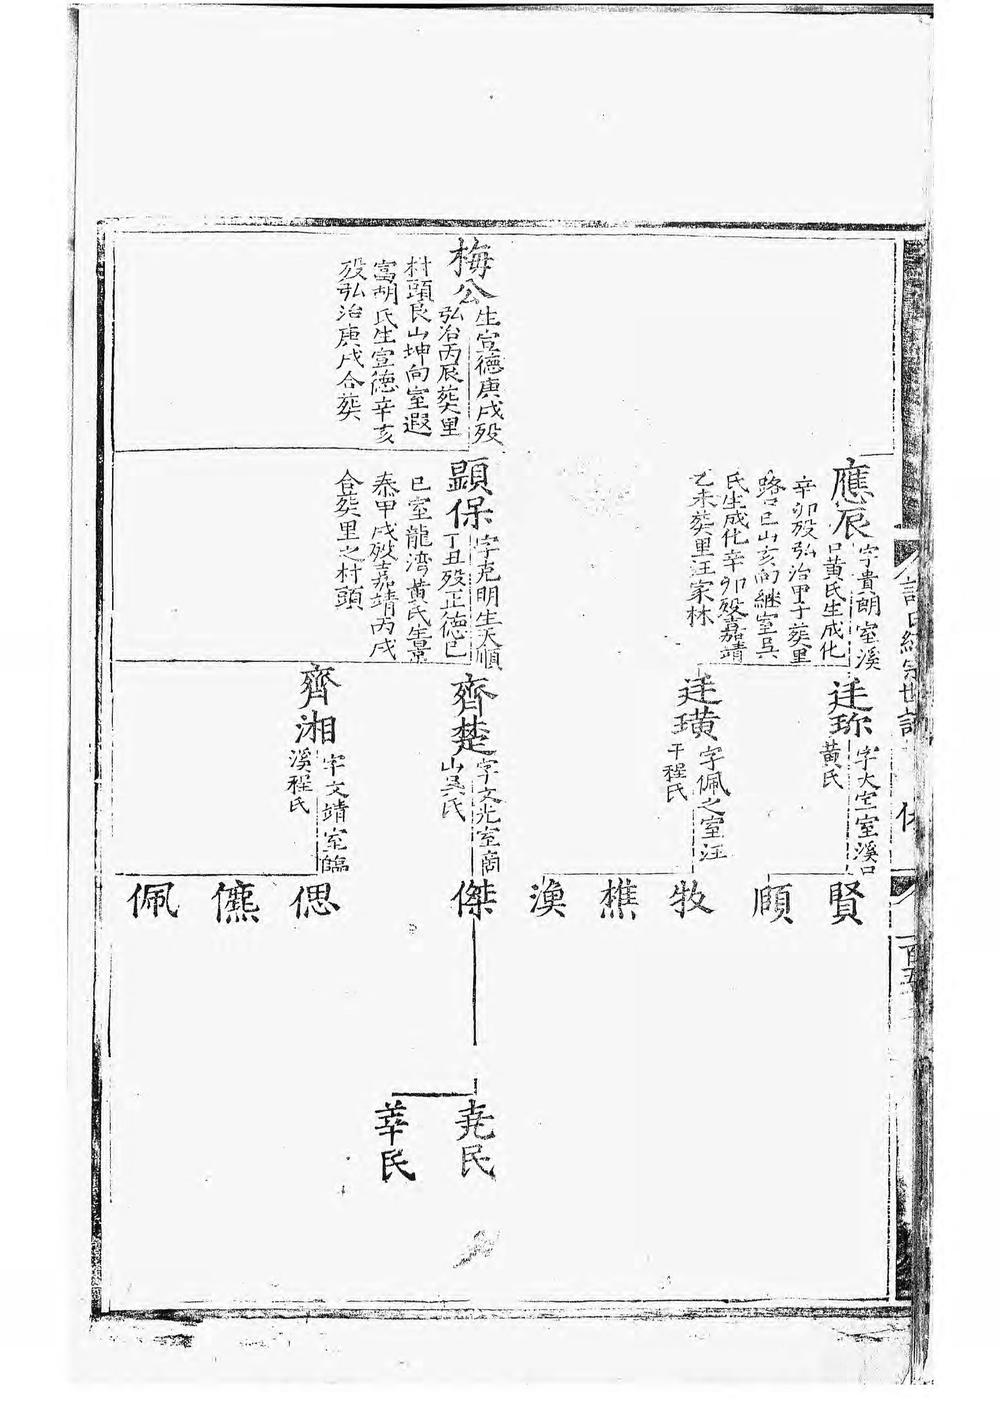 應辰
字貴朗室溪
口黃氏生成化
辛卯歿弘治甲子葬里
路口巳山亥向継室吳
氏生成化辛卯歿嘉靖
乙未葬里汪家林
字大室溪口
黃氏
字佩之室汪
干程氏
賢
頎
牧
樵
漁
梅公
生宣德庚戌歿
弘治丙辰葬里
村頭艮山坤向室遐
富胡氏生宣德辛亥
歿弘治庚戌合葬
顕保
字克明生天順
丁丑歿正德己
巳室龍湾黃氏生景
泰甲戌歿嘉靖丙戌
合葬里之村頭
齊楚
字文光室商
山吳氏
齊湘
字文靖室臨
溪程氏
傑
偲
儦
佩
尭民
莘民